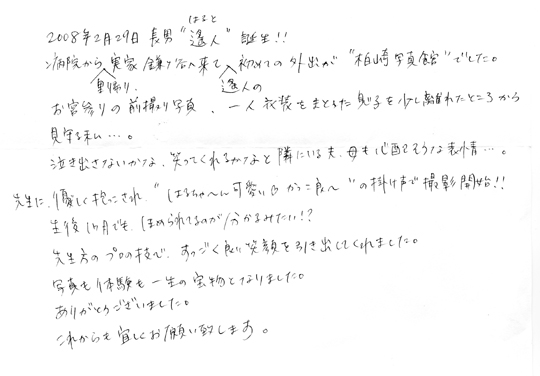 2008年2月29日 長男 "遥人" 誕生!!
はると
病院から実家鎌ヶ谷へ来て、初めての外出が "柏崎写真館" でした。
里帰り。
遥人の
お宮参りの前撮り写真、一人衣装をまとった息子を少し離れたところから
見守る私…。
泣き出さないかな、笑ってくれるかなと隣にいる夫、母も心配そうな表情…。
先生に、優しく抱っこされ、"はるちゃ〜ん可愛いねかっこ良〜" の掛け声で撮影開始!!
生後1カ月でも、ほめられてるのが分かるみたい!?
先生方のプロの技で、すっごく良い笑顔を引き出してくれました。
写真も体験も一生の宝物となりました。
ありがとうございました。
これからも宜しくお願い致します。